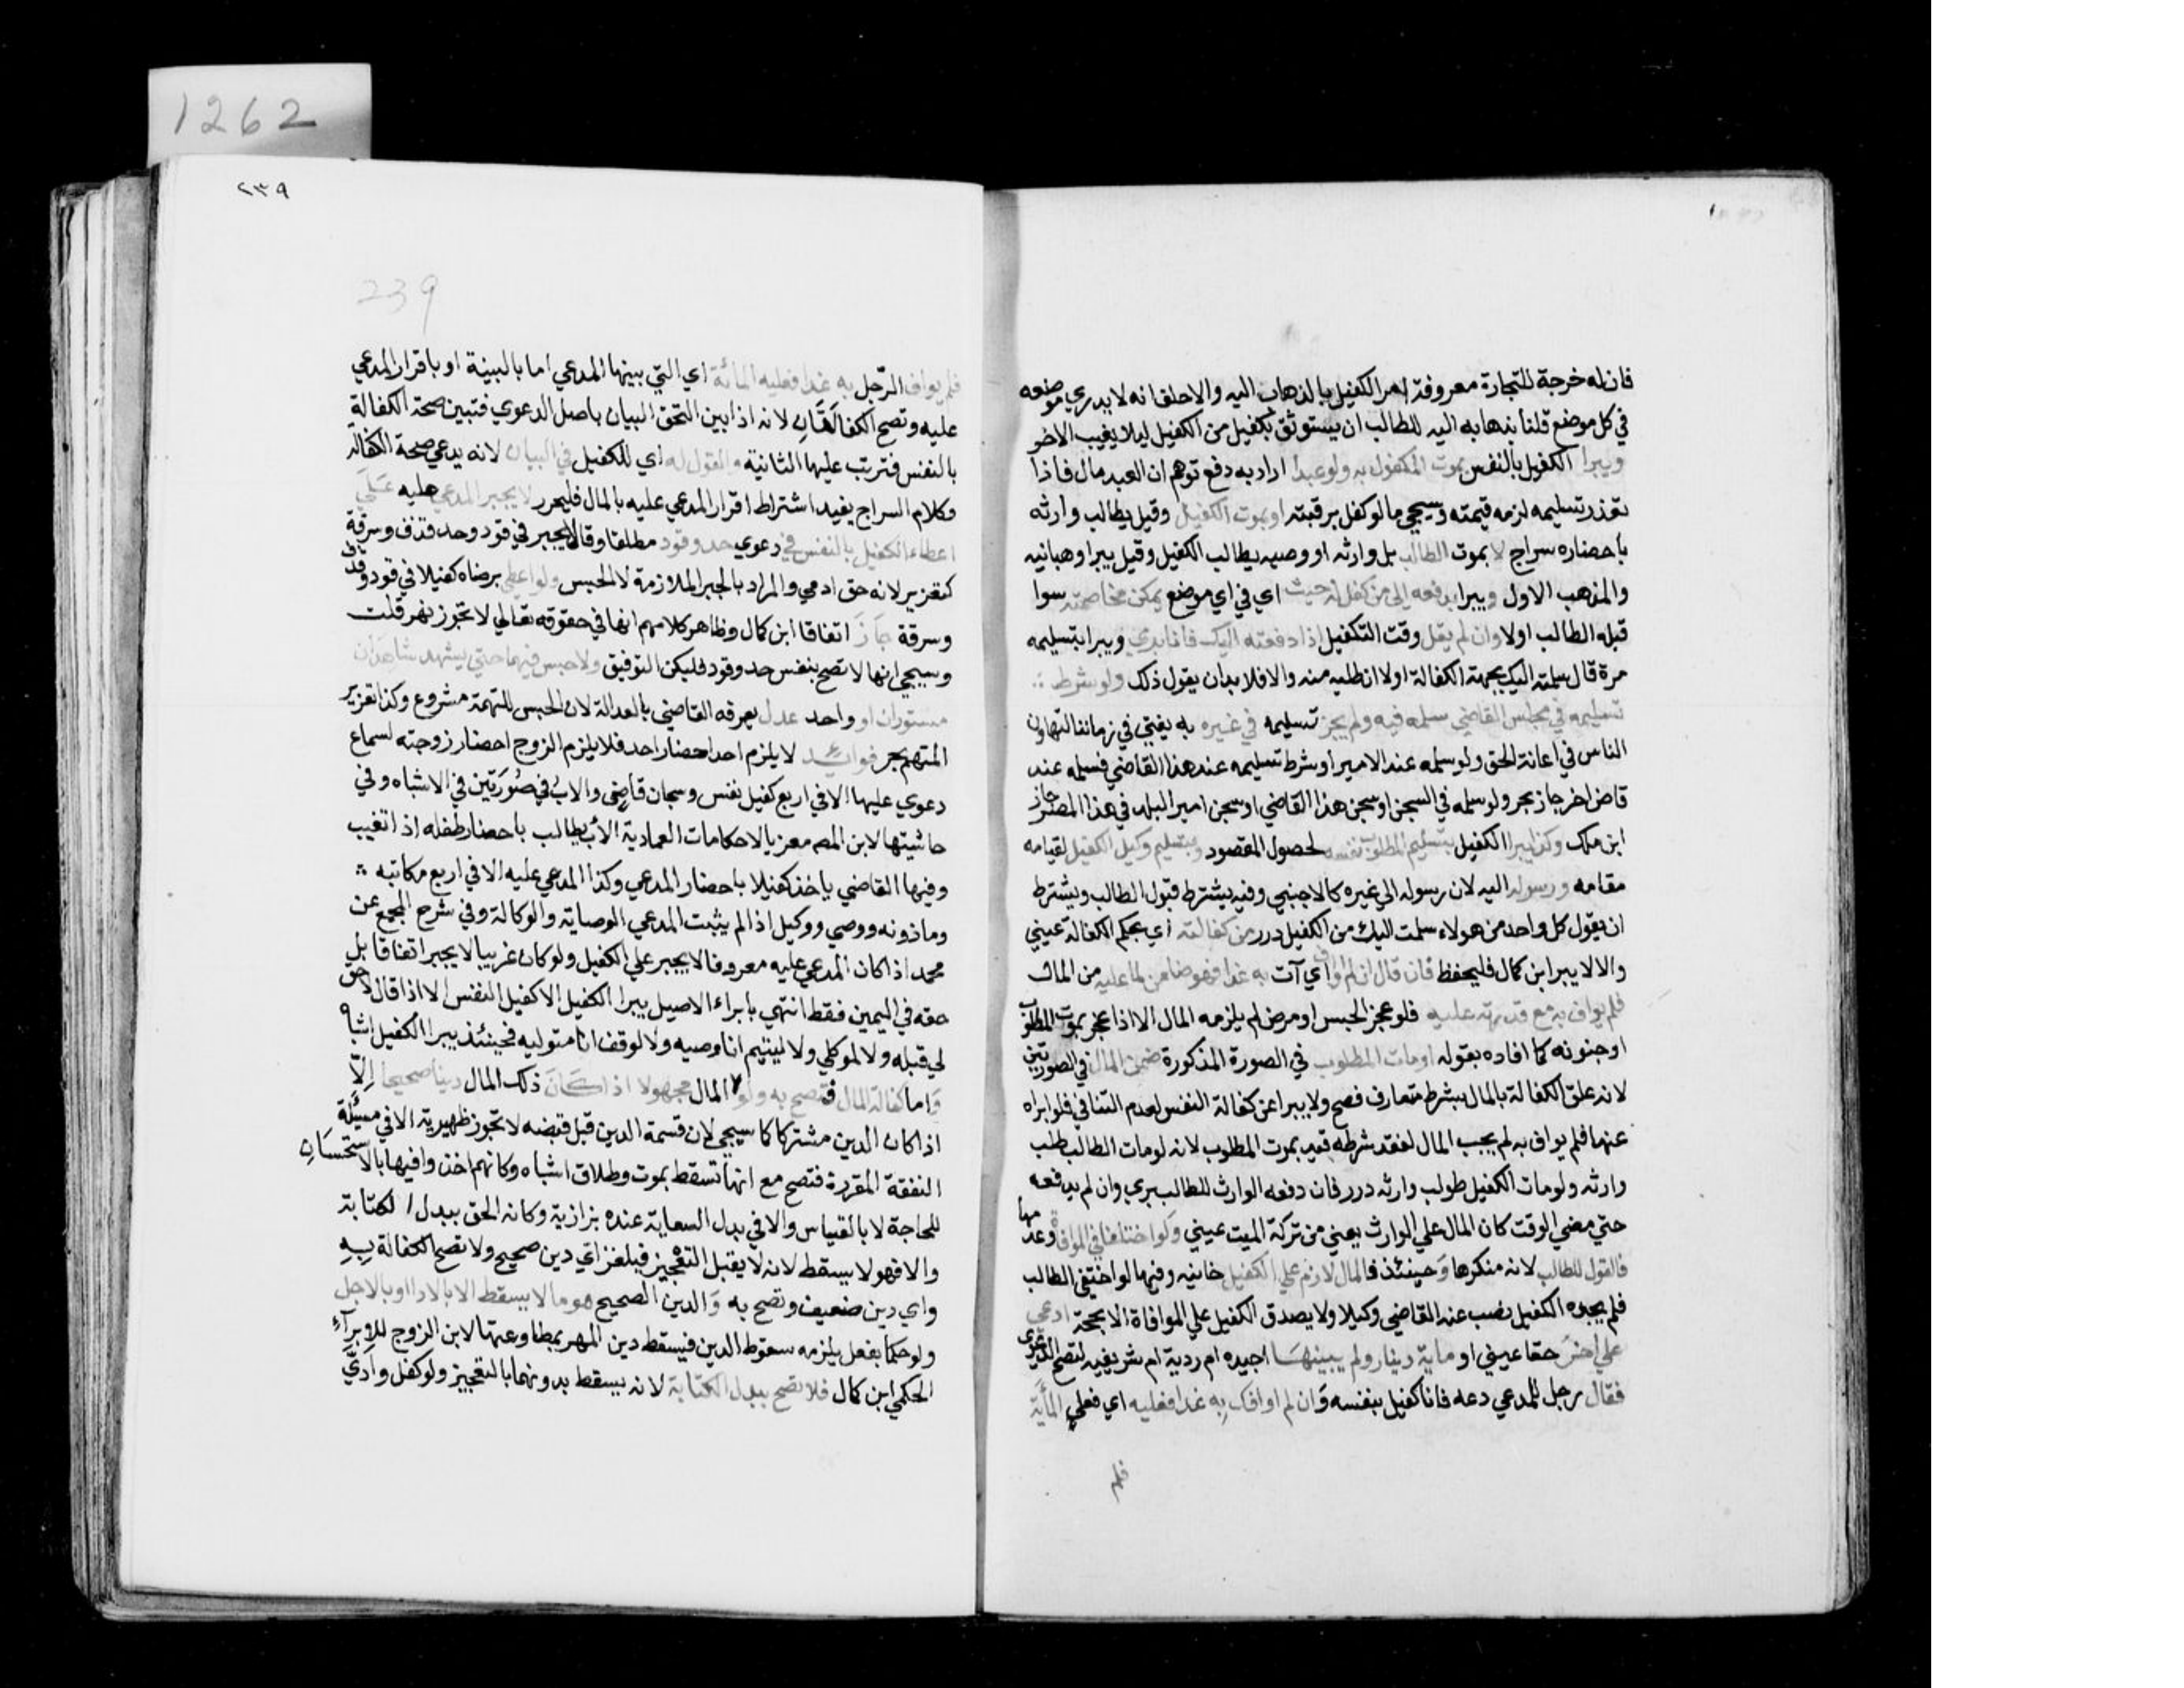 فان له خرجة للتجارة معروفة امر الكفيل بالذهاب اليه والاحلف انه لا يدري موضعه
في كل موضع قلنا بذهابه اليه للطالب ان يستوثق بكفيل من الكفيل ليلا يغيب الاخر
ويبرا الكفيل بالنفس بموت المكفول به ولو عبدا اراد به دفع توهم ان العبد مال فاذا
تعذر تسليمه لزمه قيمته وسيجي مالو كفل برقبته او بموت الكفيل وقيل يطالب وارثه
باحضاره سراج لا بموت الطالب بل وارثه او وصيه يطالب الكفيل وقيل يبرا وهبانيه
والمذهب الاول ويبرا بدفعه الى من كفل له حيث اي في اي موضع يمكن مخاصمته سوا
قبله الطالب اولا وان لم يقل وقت التكفيل اذا دفعته اليك فانا بري ويبرا بتسليمه
مرة قال سلمته اليك بجهة الكفالة اولا ان طلبه منه والا فلا بد ان يقول ذلك ولو شرط
تسليمه في مجلس القاضي سلمه فيه ولم يجز تسليمه في غيره به يفتي في زماننا لتهاون
الناس في اعانة الحق ولو سلمه عند الامير او شرط تسليمه عند هذا القاضي فسلمه عند
قاض اخر جاز بحر ولو سلمه في السجن او سجن هذا القاضي او سجن امير البلد في هذا المصر جاز
ابن ملك وكذا يبرا الكفيل بتسليم المطلوب نفسه لحصول المقصود وبتسليم وكيل الكفيل لقيامه
مقامه ورسوله اليه لان رسوله الي غيره كالاجنبي وفيه يشترط قبول الطالب ويشترط
ان يقول كل واحد من هولاء سلمت اليك من الكفيل درر من كفالته اي بحكم الكفالة عيني
والا لا يبرا ابن كمال فليحفظ فان قال ان لم اواف اي آت به غدا فهو ضامن لما عليه من المال
فلم يواف به مع قدرته عليه فلو عجز لحبس او مرض لم يلزمه المال الا اذا عجز بموت المطلوب
او جنونه كما افاده بقوله او مات المطلوب في الصورة المذكورة ضمن المال في الصورتين
لانه علق الكفالة بالمال بشرط متعارف فصح ولا يبرا عن كفالة النفس لعدم التنافي فلو ابراه
عنها فلم يواف به لم يجب المال لفقد شرطه قيد بموت المطلوب لانه لو مات الطالب طلب
وارثه ولو مات الكفيل طولب وارثه درر فان دفعه الوارث للطالب بري وان لم يدفعه
حتي مضي الوقت كان المال علي الوارث يعني من تركة الميت عيني ولو اختلفا في الموافاة وعدمها
فالقول للطالب لانه منكرها وحينئذ فالمال لازم علي الكفيل خانيه وفيها لو اختفي الطالب
فلم يجده الكفيل نصب عنه القاضي وكيلا ولا يصدق الكفيل علي الموافاة الا بحجة ادعي
علي اخر حقا عيني او ماية دينار ولم يبينها اجيده ام ردية ام شريفيه لتصح الدعوى
فقال رجل للمدعي دعه فانا كفيل بنفسه وان لم اوافك به غدا فعليه اي فعلي المأية
فلم
٢٣٩
239
فلم يواف الرجل به غدا فعليه المائة اي التي بينها المدعي اما بالبينة او باقرار المدعي
عليه وتصح الكفالتان لانه اذا بين التحق البيان باصل الدعوي فتبين صحة الكفالة
بالنفس فترتب عليها الثانية والقول له اي للكفيل في البيان لانه يدعي صحة الكفالة
وكلام السراج يفيد اشتراط اقرار المدعي عليه بالمال فليحرر لا يجبر المدعي عليه علي
اعطاء الكفيل بالنفس في دعوي حد وقود مطلقا وقالا يجبر في قود وحد قذف وسرقة
كتعزير لانه حق ادمي والمراد بالجبر الملازمة لا الحبس ولو اعطي برضاه كفيلا في قود وقذف
وسرقة جاز اتفاقا ابن كمال وظاهر كلامهم انها في حقوقه تعالي لا تجوز نهر قلت
وسيجي انها لا تصح بنفس حد وقود فليكن التوفيق ولا حبس فيهما حتي يشهد شاهدان
مستوران او واحد عدل يعرفه القاضي بالعدالة لان الحبس للتهمة مشروع وكذا تعزير
المتهم بحر فوائد لا يلزم احدا احضار احد فلا يلزم الزوج احضار زوجته لسماع
دعوي عليها الا في اربع كفيل نفس وسجان قاضي والاب في صورتين في الاشباه وفي
حاشيتها لابن المص معزيا لاحكامات العمادية الاب يطالب باحضار طفله اذا تغيب
وفيها القاضي ياخذ كفيلا باحضار المدعي وكذا المدعي عليه الا في اربع مكاتبه
وماذونه ووصي ووكيل اذا لم يثبت المدعي الوصاية والوكالة وفي شرح المجمع عن
محمد اذا كان المدعي عليه معروفا لا يجبر علي الكفيل ولو كان غريبا لا يجبر اتفاقا بل
حقه في اليمين فقط انتهي بابراء الاصيل يبرا الكفيل الا كفيل النفس الا اذا قال لا حق
لي قبله ولا لموكلي ولا ليتيم انا وصيه ولا لوقف انا متوليه فحينئذ يبرا الكفيل اشباه
واما كفالة المال فتصح به ولو المال مجهولا اذا كان ذلك المال دينا صحيحا الا
اذا كان الدين مشتركا كا سيجي لان قسمة الدين قبل قبضه لا تجوز ظهيرية الا في مسئلة
النفقة المقررة فتصح مع انها تسقط بموت وطلاق اشباه وكانهم اخذوا فيها بالاستحسان
للحاجة لا بالقياس والا في بدل السعاية عنده بزازية وكانه الحق ببدل الكتابة
والا فهو لا يسقط لانه لا يقبل التعجيز فيلغز اي دين صحيح ولا تصح الكفالة به
واي دين ضعيف وتصح به والدين الصحيح هو ما لا يسقط الا بالادا او بالاجل
ولو حكما بفعل يلزمه سقوط الدين فيسقط دين المهر بمطاوعتها لابن الزوج للابرآء
الحكمي ابن كمال فلا تصح ببدل الكتابة لانه يسقط بدونهما بالتعجيز ولو كفل وادي
1262